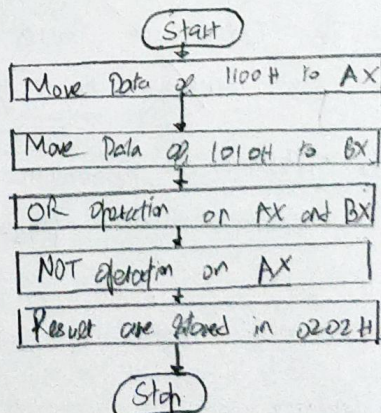 Start
Move Data of 1100H to AX
Move Data of 1010H to BX
OR operation on AX and BX
NOT operation on AX
Result are stored in 0202H
Stop